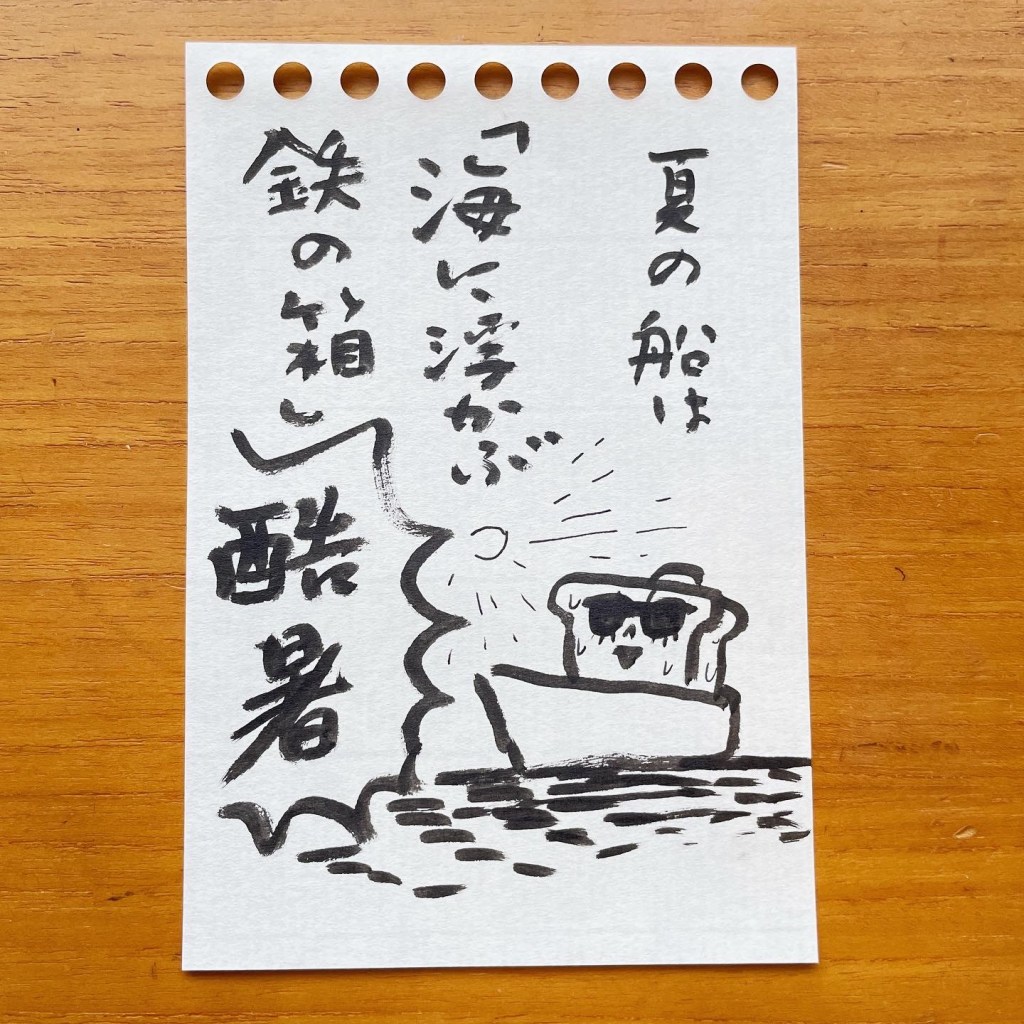 夏の船は
「海に浮かぶ
鉄の箱」
酷暑